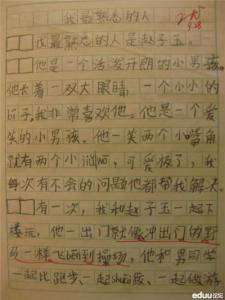 我最熟悉的人
我最熟悉的人是赵子玉。
他是一个活泼开朗的小男孩,
他长着一双大眼睛,一个小小的
鼻子我非常喜欢他。他是一个爱
笑的小男孩,他一笑两个小嘴角
就有两个小酒窝,可爱极了,我
每次有不会的问题他都帮我解决。
有一次,我和赵子玉一起下
楼玩,他一出门就像冲出门的野
马一样飞跑到操场,他和男同学
一起比跑步、一起 一起做游
eduu论坛